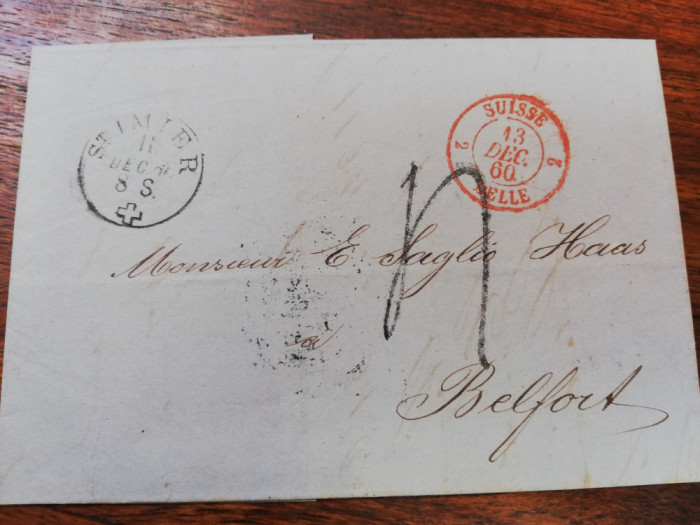 ST IMIER
11
DEC. 60
8 S.
SUISSE
13
DEC.
60.
2 2
DELLE
Monsieur E Saglio Haas
a
Belfort